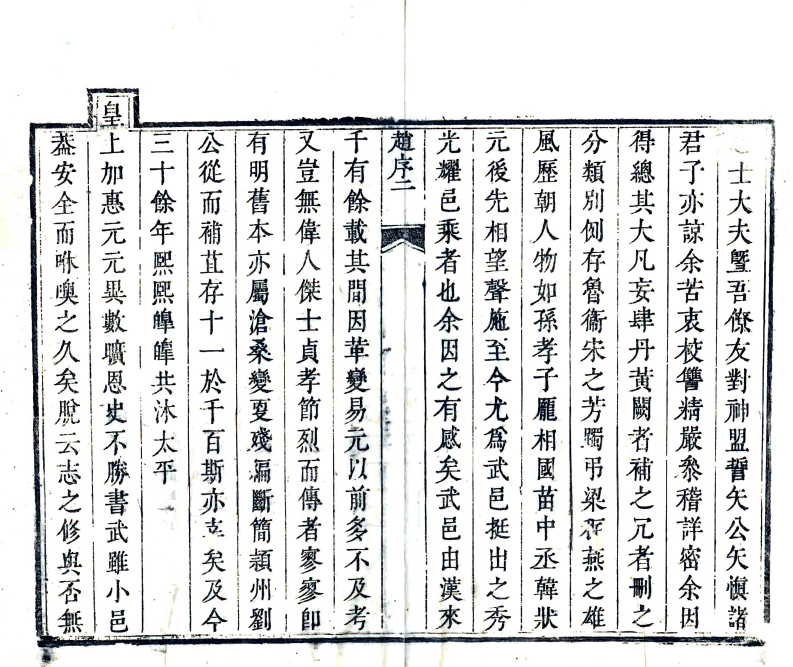 士大夫暨吾僚友對神盟誓矢公矢愼諸
君子亦諒余苦衷校讐精嚴叅稽詳密余因
得總其大凡妄肆丹黃闕者補之冗者刪之
分類別例存魯衞宋之芳躅弔梁燕之雄
風歷朝人物如孫孝子龐相國苗中丞韓狀
元後先相望聲施至今尤爲武邑挺出之秀
光耀邑乘者也余因之有感矣武邑由漢來
趙序二
千有餘載其間因革變易元以前多不及考
又豈無偉人傑士貞孝節烈而傳者寥寥卽
有明舊本亦屬滄桑變更殘漏斷簡潁州劉
公從而補苴存十一於千百斯亦幸矣及今
三十餘年熙熙皡皡共沐太平
皇
上加惠元元異數曠恩史不勝書武雖小邑
葢安全而咻噢之久矣脫云志之修與否無